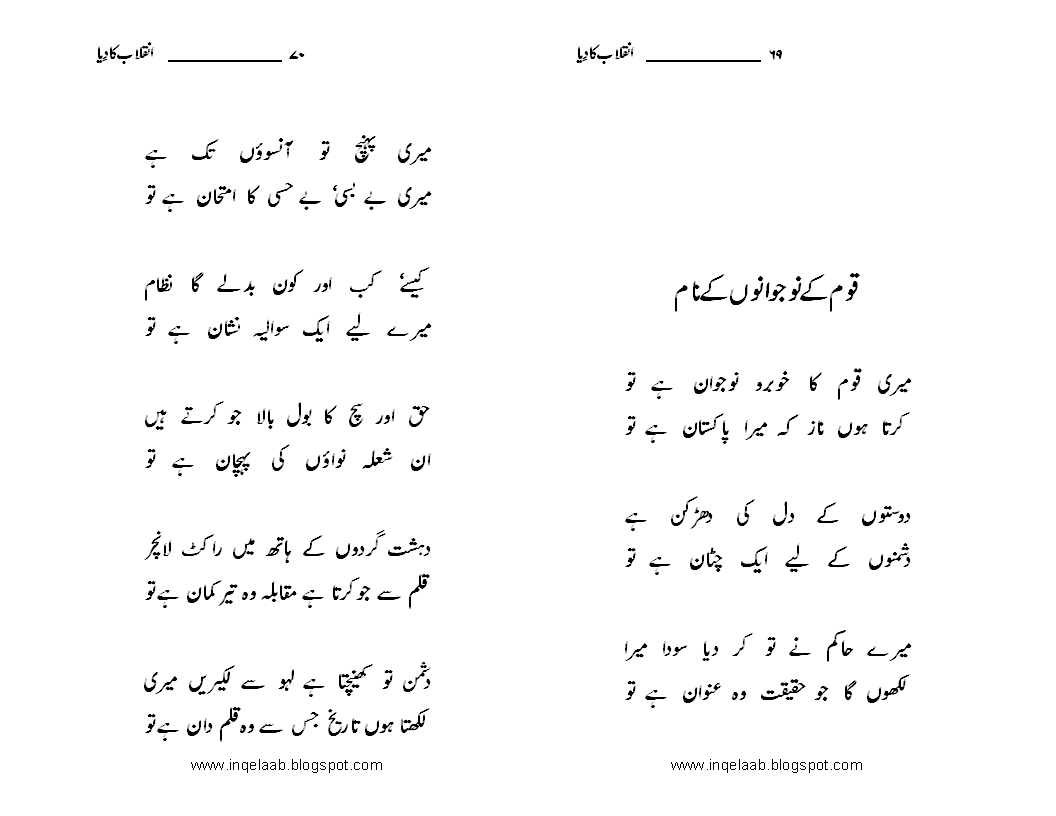 انقلاب کا دِیا ۶۹
قوم کے نوجوانوں کے نام
میری قوم کا خوبرو نوجوان ہے تو
کرتا ہوں ناز کہ میرا پاکستان ہے تو
دوستوں کے دل کی دھڑکن ہے
دشمنوں کے لیے ایک چٹان ہے تو
میرے حاکم نے تو کر دیا سودا میرا
لکھوں گا جو حقیقت وہ عنوان ہے تو
www.inqelaab.blogspot.com
انقلاب کا دِیا ۷۰
میری پہنچ تو آنسوؤں تک ہے
میری بے بسی، بے حسی کا امتحان ہے تو
کیسے، کب اور کون بدلے گا نظام
میرے لیے ایک سوالیہ نشان ہے تو
حق اور سچ کا بول بالا جو کرتے ہیں
ان شعلہ نواؤں کی پہچان ہے تو
دہشت گردوں کے ہاتھ میں راکٹ لانچر
قلم سے جو کرتا ہے مقابلہ وہ تیر کمان ہے تو
دشمن تو کھینچتا ہے لہو سے لکیریں میری
لکھتا ہوں تاریخ جس سے وہ قلم دان ہے تو
www.inqelaab.blogspot.com